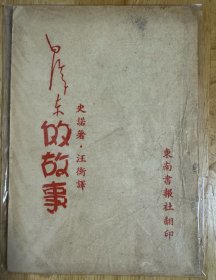 毛泽东
的故事
史諾著·汪衡譯
東南書報社翻印